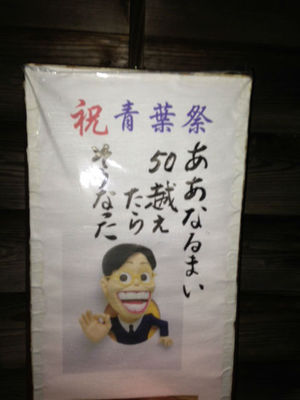 祝青葉祭
ああなるまい
50越えたら
そうなった